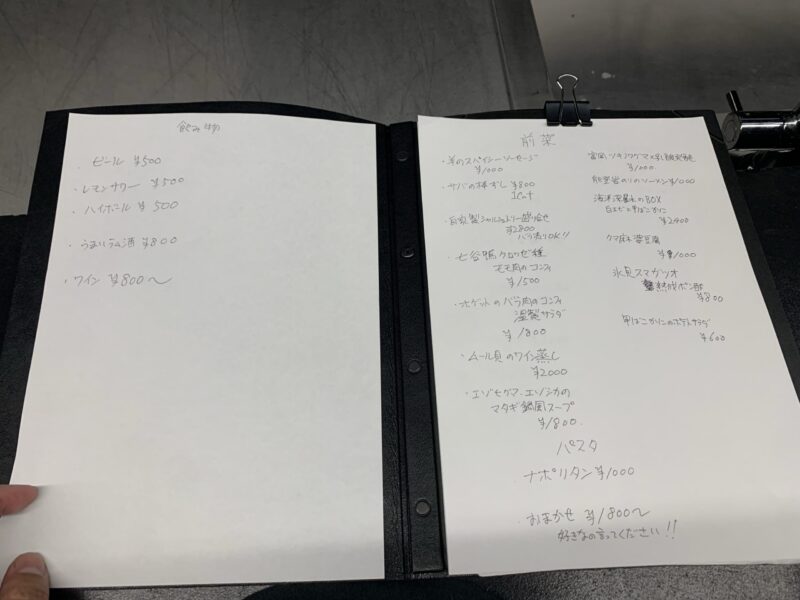 飲み物
・ビール ¥500
・レモンサワー ¥500
・ハイボール ¥500
・うまいラム酒 ¥800
・ワイン ¥800〜
前菜
・羊のスパイシーソーセージ
¥1000
・サバの棒ずし ¥800
1カット
・自家製シャルキュトリー盛り合せ
¥2800
バラ売りOK!!
・七谷鴨クロワゼ種
モモ肉のコンフィ
¥1500
・ホゲットのバラ肉のコンフィ
温製サラダ
¥1800
・ムール貝のワイン蒸し
¥2000
・エゾヒグマ、エゾシカの
マタギ鍋風スープ
¥1800.
パスタ
・ナポリタン ¥1000
・おまかせ ¥1800〜
好きなの言ってください!!
富岡ツキノワグマ
¥1000.
能登岩のりのソーメン ¥1000
海洋深層水のBOX
白エビと甲ばこガニ
¥2400
クマ麻婆豆腐
¥1000
氷見スマガツオ
熟成ポン酢
¥800
甲ばこガニのポテトサラダ
¥600